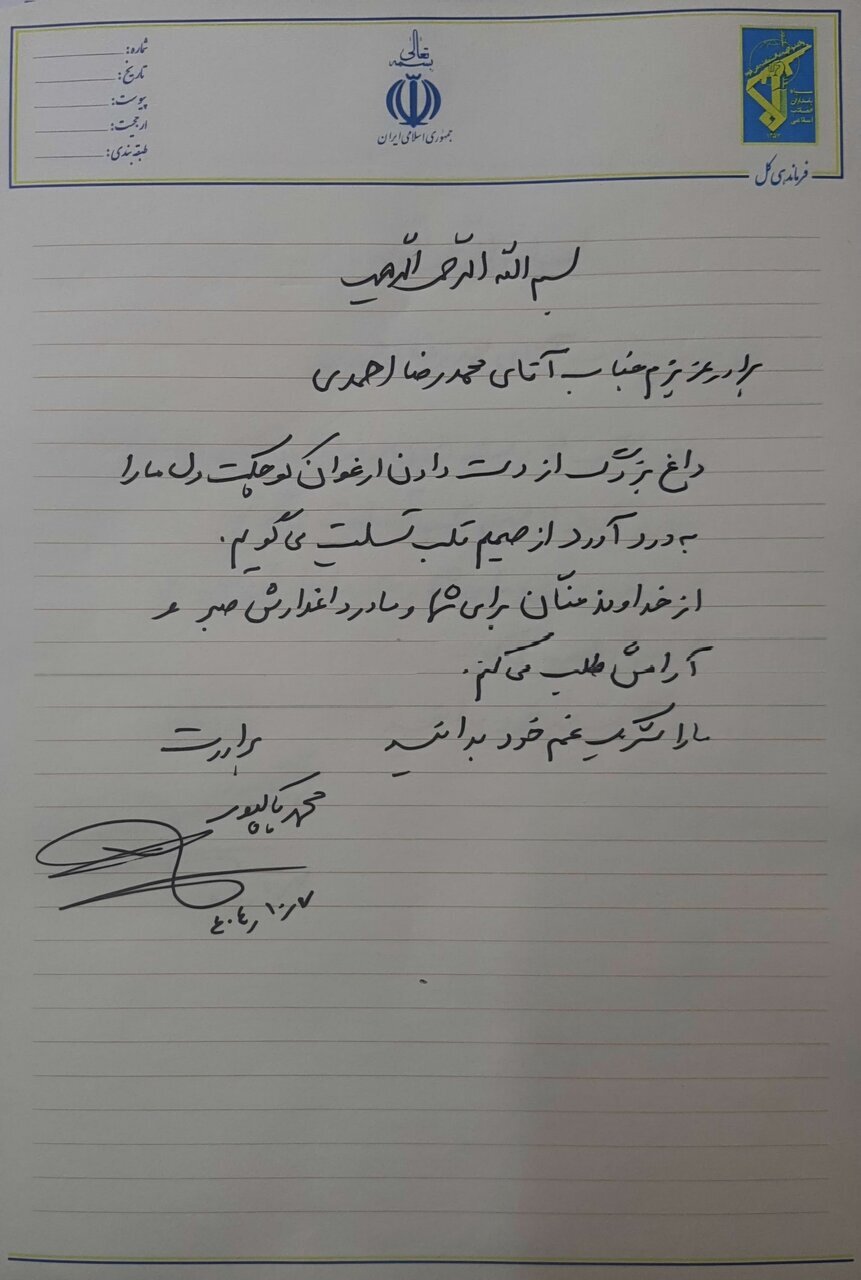 بسمه تعالی
جمهوری اسلامی ایران
شماره:
تاریخ:
پیوست:
ارجحیت:
طبقه بندی:
سپاه
پاسداران
انقلاب
اسلامی
فرماندهی کل
بسم الله الرحمن الرحیم
برادر عزیزم جناب آقای محمد رضا احمدی
داغ بزرگ از دست دادن ارغوان کوچکت دل ما را
به درد آورد از صمیم قلب تسلیت می گویم.
از خداوند منّان برای شما و مادر داغدارش صبر و
آرامش طلب می کنم.
ما را شریک غم خود بدانید
برادرت
محمد پاکپور
۴۰۴٫۱۰٫۷